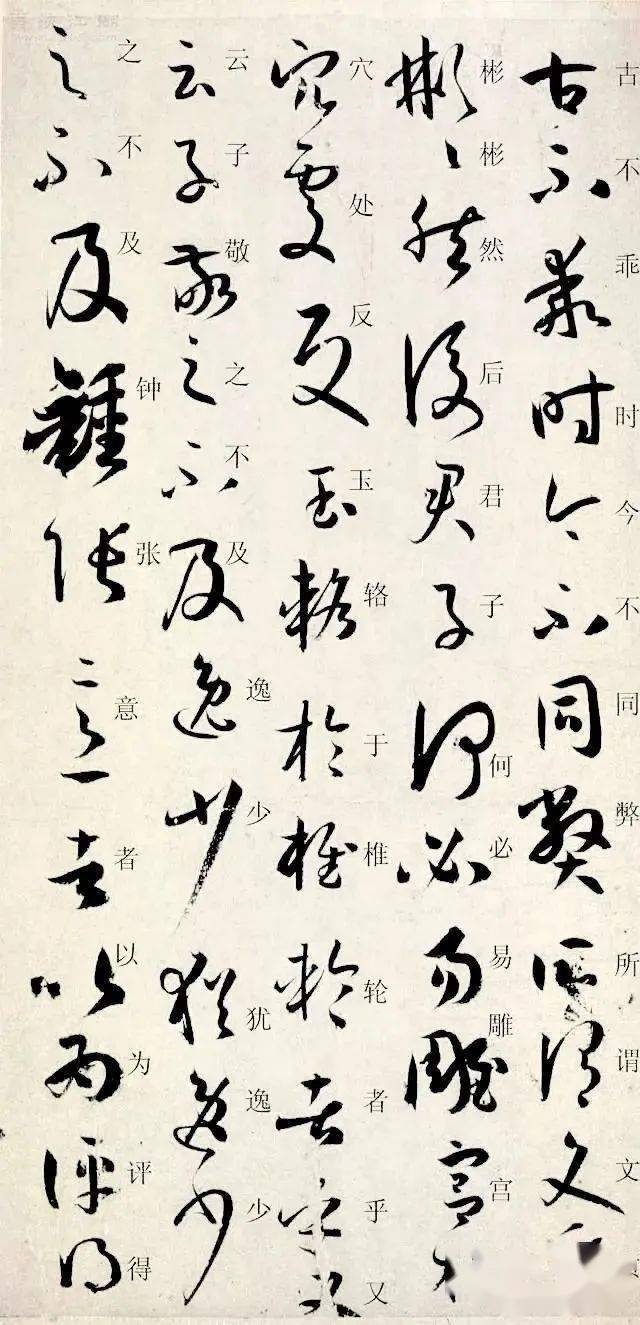 古不乖时今不同弊所谓文
彬彬然后君子何必易雕宫
穴处反玉辂于椎轮者乎又
云子敬之不及逸少犹逸少
之不及钟张意者以为评得